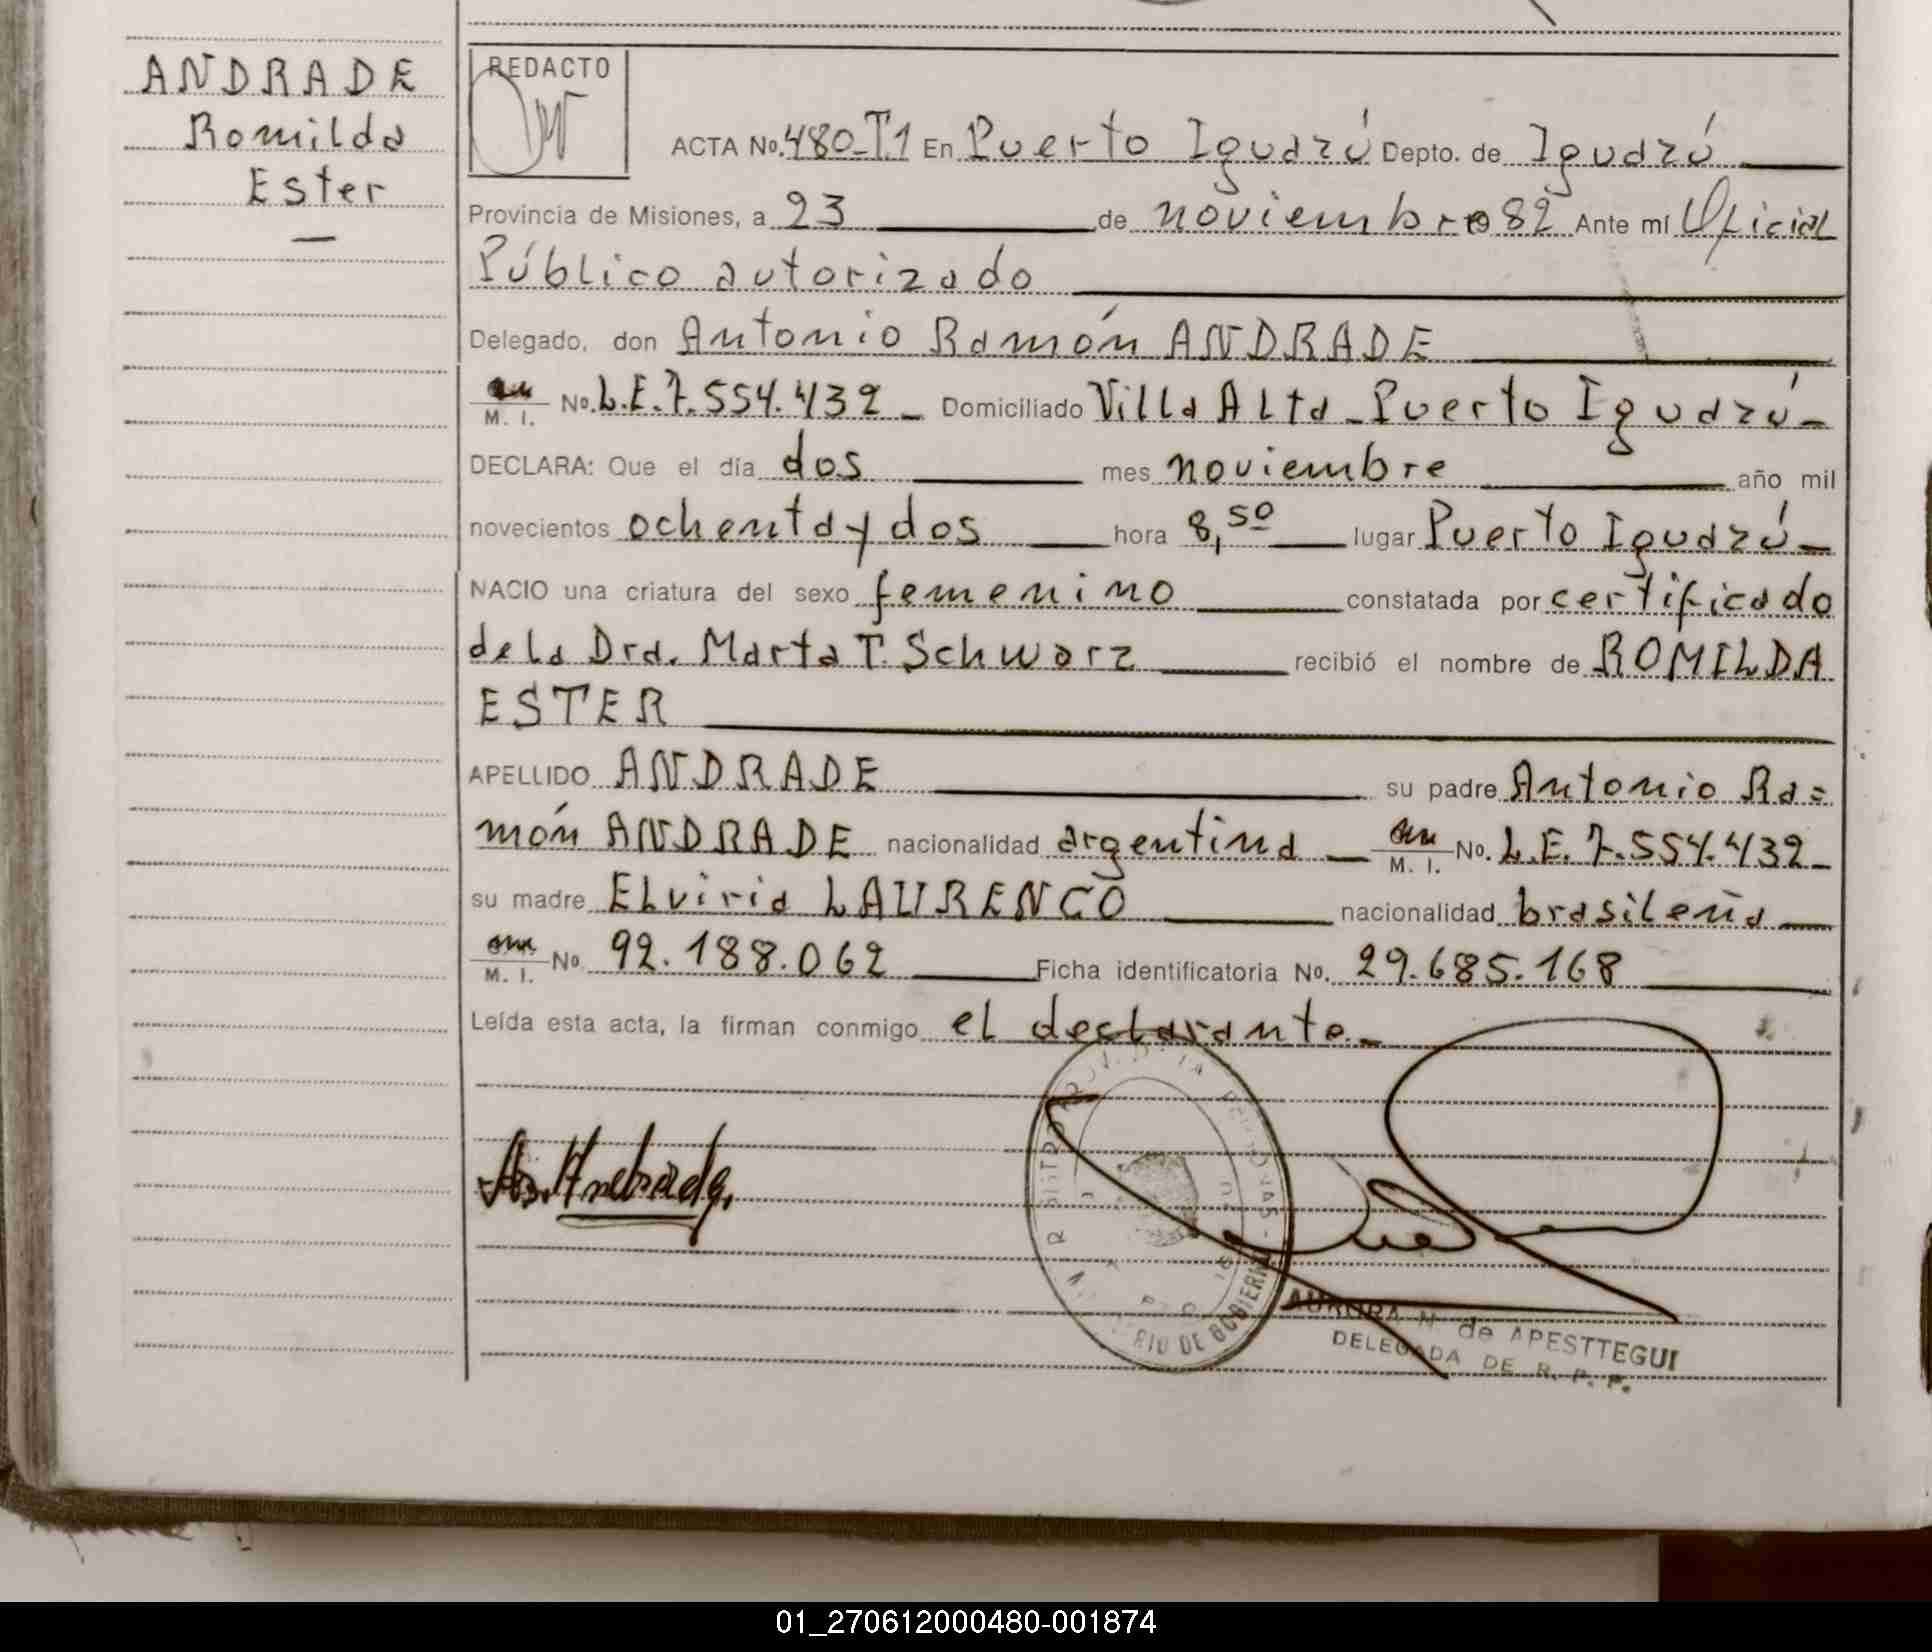 ANDRADE
Romilda
Ester
REDACTO
ACTA No. 480-T1 En Puerto Iguazú Depto. de Iguazú
Provincia de Misiones, a 23 de noviembre 82 Ante mí Oficial
Público autorizado
Delegado, don Antonio Ramón ANDRADE
M. I. No. L.E.7.554.432 Domiciliado Villa Alta-Puerto Iguazú-
DECLARA: Que el día dos mes noviembre año mil
novecientos ochenta y dos hora 8,50 lugar Puerto Iguazú-
NACIO una criatura del sexo femenino constatada por certificado
de la Dra. Marta T. Schwarz recibió el nombre de ROMILDA
ESTER
APELLIDO ANDRADE su padre Antonio Ra=
món ANDRADE nacionalidad argentina M. I. No. L.E. 7.554.432-
su madre Elviria LAURENCO nacionalidad brasileña
M. I. No. 92.188.062 Ficha identificatoria No. 29.685.168
Leída esta acta, la firman conmigo el declarante.-
Andrade
RIO DE GOBIERNO
AURORA N. de APESTTEGUI
DELEGADA DE R. P. P.
01_270612000480-001874